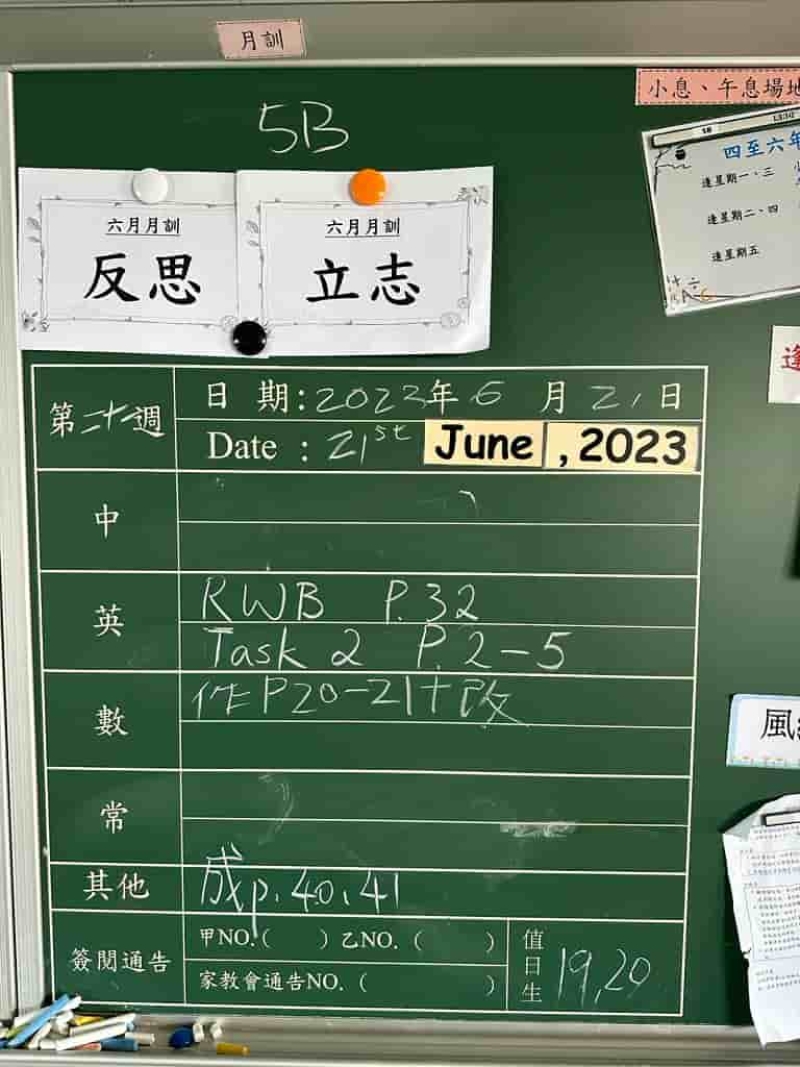 月訓
小息、午息場地
5B
四至六年
逢星期一、三
逢星期二、四
逢星期五
六月月訓
反思
六月月訓
立志
逢
第二十週
日 期:2023年6月21日
Date : 21st June, 2023
中
英
RWB P.32
Task 2 P.2-5
數
作P20-21+改
常
其他
成p.40,41
簽閱通告
甲NO.( ) 乙NO. ( )
家教會通告NO. ( )
值日生
19,20
風